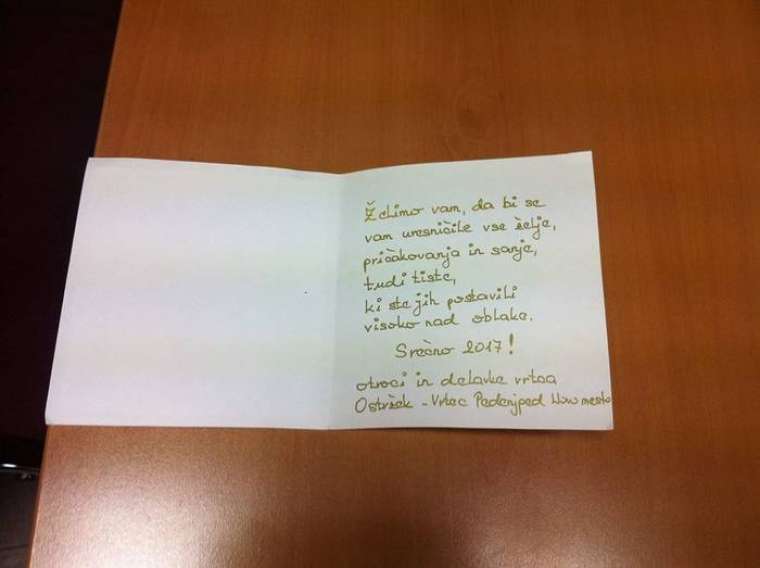 Želimo vam, da bi se
vam uresničile vse želje,
pričakovanja in sanje,
tudi tiste,
ki ste jih postavili
visoko nad oblake.
Srečno 2017!
otroci in delavke vrtca
Ostržek - Vrtec Pedenjped Novo mesto